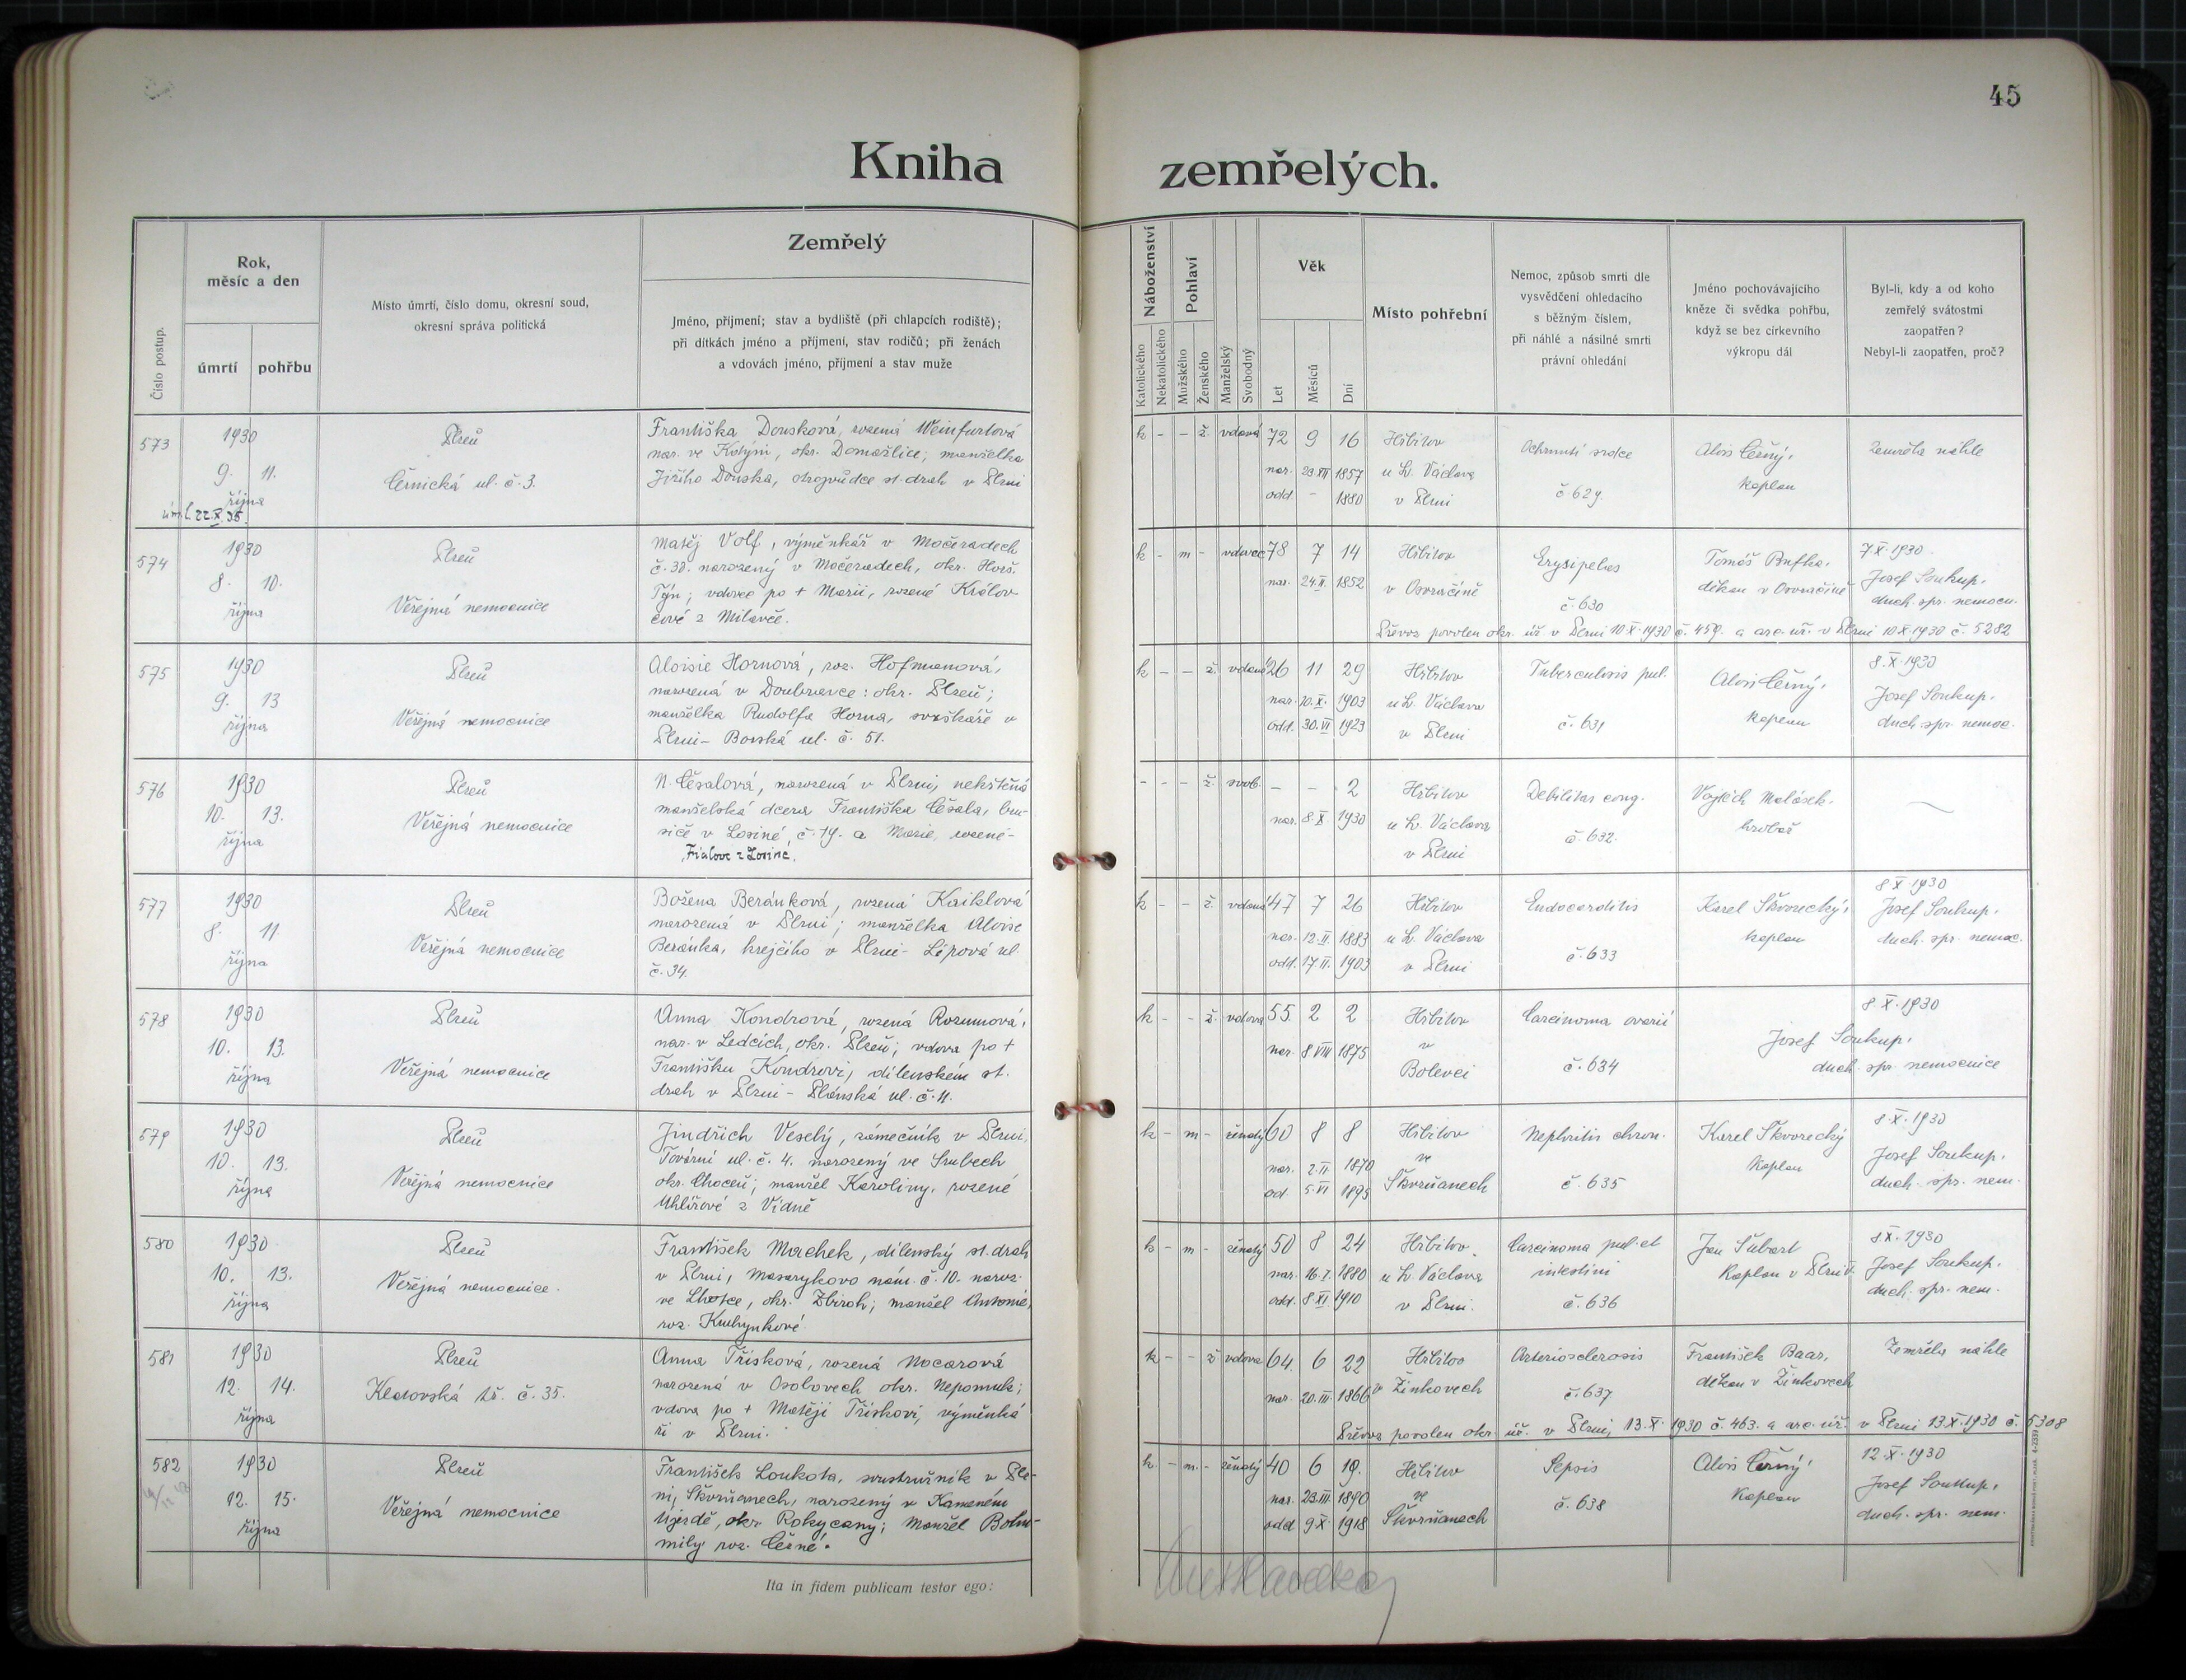 45
Kniha zemřelých.
Číslo postup.
Rok,
měsíc a den
úmrtí
pohřbu
Místo úmrtí, číslo domu, okresní soud,
okresní správa politická
Zemřelý
Jméno, příjmení; stav a bydliště (při chlapcích rodiště);
při dítkách jméno a příjmení, stav rodičů; při ženách
a vdovách jméno, příjmení a stav muže
Náboženství
Katolického
Nekatolického
Pohlaví
Mužského
Ženského
Manželský
Svobodný
Věk
Let
Měsíců
Dní
Místo pohřební
Nemoc, způsob smrti dle
vysvědčení ohledacího
s běžným číslem,
při náhlé a násilné smrti
právní ohledání
Jméno pochovávajícího
kněze či svědka pohřbu,
když se bez církevního
výkropu dál
Byl-li, kdy a od koho
zemřelý svátostmi
zaopatřen?
Nebyl-li zaopatřen, proč?
573
1930
9. 11.
října
22.X.35.
Plzeň
Černická ul. č. 3.
Františka Dousková, rozená Weinfurtová
nar. ve Kdyni, okr. Domažlice; manželka
Jiřího Douska, strojvůdce st. drah v Plzni
k - - ž. vdova 72 9 16
nar. 23.XII 1857
odd. - 1880
Hřbitov
u sv. Václava
v Plzni
Ochrnutí srdce
č. 629.
Alois Černý,
kaplan
Zemřela náhle
574
1930
8. 10.
října
Plzeň
Veřejná nemocnice
Matěj Volf, výměnkář v Močeradech
č. 38. narozený v Močeradech, okr. Horš.
Týn; vdovec po + Marii, rozené Královcové
z Milavče.
k - m - vdovec 78 7 14
nar. 24.II. 1852
Hřbitov
v Osvračíně
Erysipelas
č. 630
Tomáš
děkan v Osvračíně
7.X.1930.
Josef Soukup,
duch. spr. nemocn.
Převoz povolen okr. úř. v Plzni 10.X.1930 č. 459. a arc. úř. v Plzni 10.X.1930 č. 5282
575
1930
9. 13
října
Plzeň
Veřejná nemocnice
Aloisie Hornová, roz. Hofmanová,
narozená v Doubravce: okr. Plzeň;
manželka Rudolfa Horna, svářkaře v
Plzni - Borská ul. č. 51.
k - - ž. vdaná 26 11 29
nar. 10.X. 1903
odd. 30.VI 1923
Hřbitov
u sv. Václava
v Plzni
Tuberculosis pul.
č. 631
Alois Černý,
kaplan
8.X.1930
Josef Soukup.
duch. spr. nemoc.
576
1930
10. 13.
října
Plzeň
Veřejná nemocnice
N. Česalová, narozená v Plzni, nekřtěná
manželská dcera Františka Česala, bru-
siče v Losiné č. 19. a Marie, rozené-
Fialové z Losiné.
- - - ž. svob. - - 2
nar. 8.X 1930
Hřbitov
u sv. Václava
v Plzni
Debilitas cong.
č. 632.
Vojtěch Malásek.
hrobař
577
1930
8. 11
října
Plzeň
Veřejná nemocnice
Božena Beránková, rozená Kaiklová
narozená v Plzni; manželka Aloise
Beránka, krejčího v Plzni - Lípová ul.
č. 34.
k - - ž. vdaná 47 7 26
nar. 12.II. 1883
odd. 17.II. 1903
Hřbitov
u sv. Václava
v Plzni
Endocarditis
č. 633
Karel Škvorecký,
kaplan
8.X.1930
Josef Soukup.
duch. spr. nemoc.
578
1930
10. 13.
října
Plzeň
Veřejná nemocnice
Anna Kondrová, rozená Rozumová,
nar. v Ledcích, okr. Plzeň; vdova po +
Františku Kondrovi, dílenském st.
drah v Plzni - Plánská ul. č. 11.
k - - ž. vdova 55 2 2
nar. 8.VIII 1875
Hřbitov
v
Bolevci
Carcinoma ovarii
č. 634
8.X.1930
Josef Soukup,
duch. spr. nemocnice
579
1930
10. 13.
října
Plzeň
Veřejná nemocnice
Jindřich Veselý, zámečník v Plzni,
Tovární ul. č. 4. narozený ve Srubech
okr. Choceň; manžel Karoliny, rozené
Uhlířové z Vídně
k - m - ženatý 60 8 8
nar. 2.II 1870
od. 5.VI 1895
Hřbitov
ve
Škvrňanech
Nephritis chron.
č. 635
Karel Škvorecký
kaplan
8.X.1930
Josef Soukup.
duch. spr. nem.
580
1930
10. 13.
října
Plzeň
Veřejná nemocnice.
František Machek, dílenský st. drah
v Plzni, Masarykovo nám. č. 10. naroz.
ve Lhotce, okr. Zbiroh; manžel Antonie,
roz. Kuchynkové.
k - m - ženatý 50 8 24
nar. 16.I. 1880
odd. 8.XI. 1910
Hřbitov
u sv. Václava
v Plzni.
Carcinoma pul. et
intestini
č. 636
Jan Šubart
Kaplan v Plzni
8.X.1930
Josef Soukup.
duch. spr. nem.
581
1930
12. 14.
října
Plzeň
Klatovská tř. č. 35.
Anna Třísková, rozená Nocarová
narozená v Osobovech okr. Nepomuk;
vdova po + Matěji Třískovi, výměnká
ři v Plzni.
k - - ž vdova 64 6 22
nar. 20.III 1866
Hřbitov
v Žinkovech
Arteriosclerosis
č. 637
František Baar,
děkan v Žinkovech
Zemřela náhle
Převoz povolen okr. úř. v Plzni, 13.X.1930 č. 463. a arc. úř. v Plzni 13.X.1930 č. 5308
582
1930
12. 15.
října
Plzeň
Veřejná nemocnice
František Loukota, soustružník v Plz-
ni, Škvrňanech, narozený v Kamenném
Újezdě, okr. Rokycany; manžel Bohu-
mily roz. Černé.
k - m - ženatý 40 6 19.
nar. 23.III. 1890
odd. 9.X. 1918
Hřbitov
ve
Škvrňanech
Sepsis
č. 638
Alois Černý,
Kaplan
12.X.1930
Josef Soukup,
duch. spr. nem.
Ita in fidem publicam testor ego: